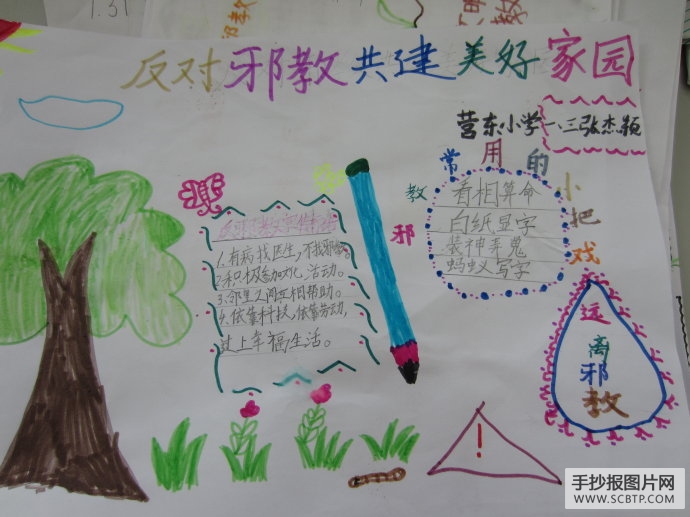 1.31
反对邪教共建美好家园
营东小学一.三张杰颖
邪教常用的小把戏
看相算命
白纸显字
装神弄鬼
蚂蚁写字
1.有病找医生,不找邪教。
2.积极参加文化活动。
3.邻里之间互相帮助。
4.依靠科技,依靠劳动,
过上幸福生活。
远离邪教
!
手抄报图片网
WWW.SCBTP.COM